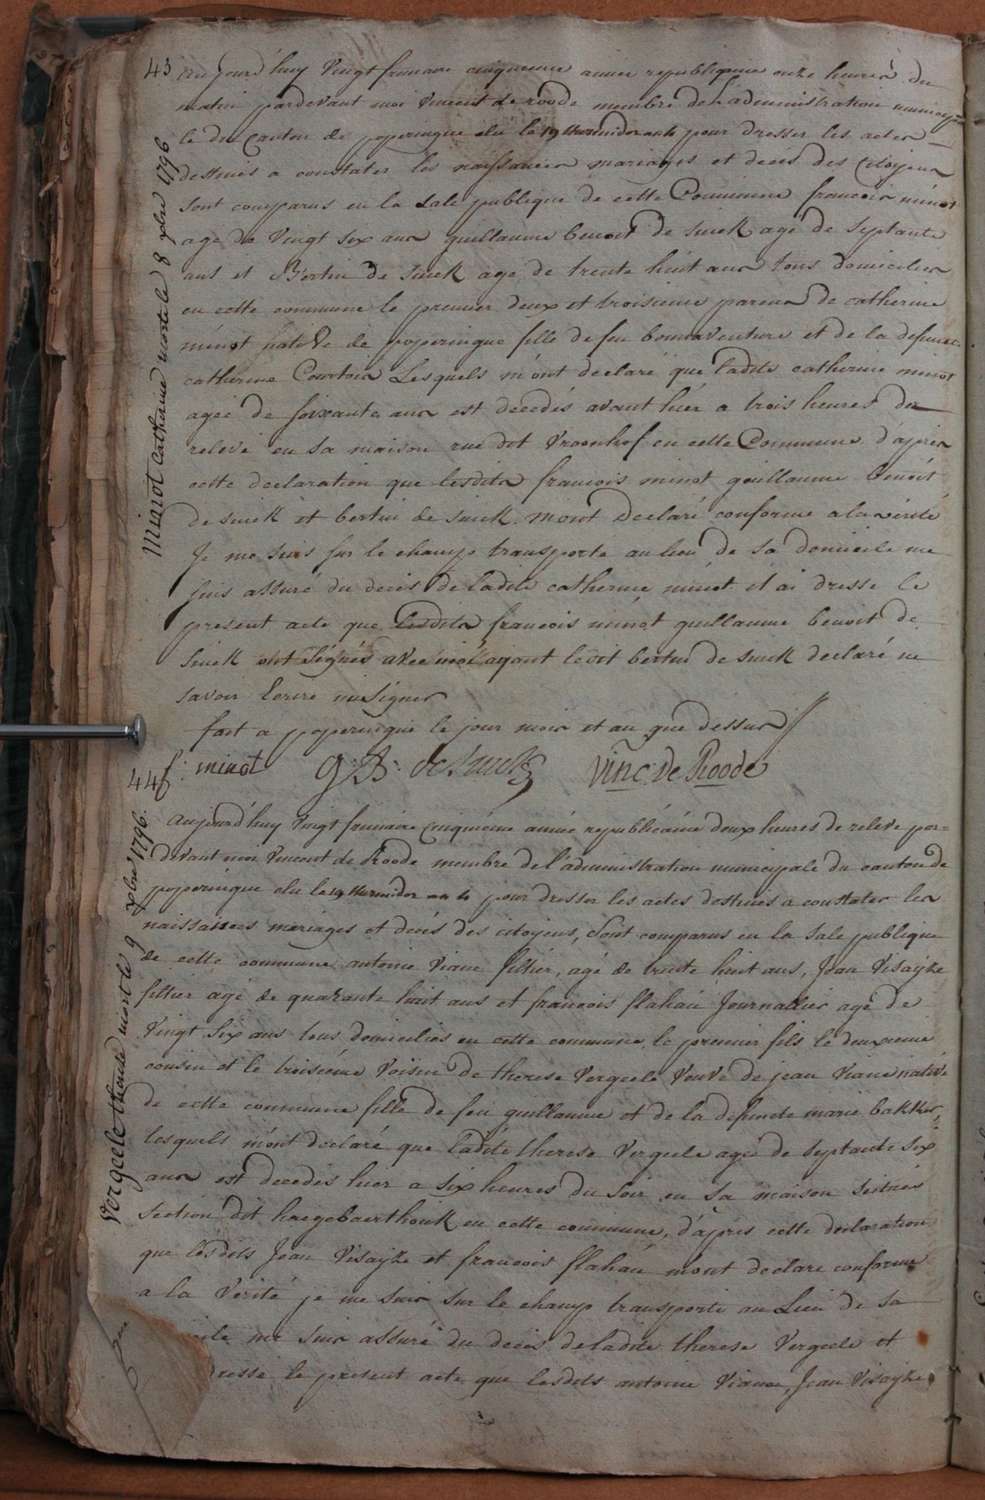 43 aujourd'huy vingt frimaire cinquieme annee republiquine onze heures du
matin pardevant moi vincent de roode membre de l'administration municipa
le du canton de poperingue elu le 19 thermidor an 4 pour dresser les actes
destinés a constater les naissances mariages et décés des citoyens
sont comparus en la sale publique de cette Commune francois minot
agé de vingt six ans guillaume benoit de smek agé de septante
ans et Bertin de smek agé de trente huit ans tous domicilies
en cette commune le premier deux et troisieme parens de catherine
minot native de poperingue fille de feu bonnaventure et de la defuncte
catherine Courtois Lesquels m'ont declaré que ladite catherine minot
ageé de soixante ans est decedés avant hier a trois heures de
relevé en sa maison rue dit vroonhof en cette Commune d'apres
cette declaration que lesdits francois minot guillaume benoit
de smek et bertin de smek mont declaré conforme a la vérité
Je me suis sur le champ transporte au lieu de sa domicile me
suis assuré du decés de ladite catherine minot et ai dresse le
present acte que lesdits francois minot guillaume benoit de
smek ont signés avec moi ayant ledit bertin de smek declaré ne
savoir ecrire ni signer
fait a poperingue le jour mois et an que dessus
f: minot G: B: de smek vinc. de Roode
Minot catharine morte le 8 xbre 1796
44 Aujourd'huy vingt frimaire cinquiéme année republicaine deux heures de relevé par-
devant moi vincent de Roode membre de l'administration municipale du canton de
poperingue elu le 19 thermidor an 4 pour dresser les actes destines a constater les
naissances mariages et décés des citoyens, sont comparus en la sale publique
de cette commune antoine viane fillier, agé de trente huit ans, Jean visayke
fillier agé de quarante huit ans et francois flahau Journallier agé de
vingt six ans tous domicilies en cette commune le premier fils le deuxieme
cousin et le troisiéme voisin de therese vergeele veuve de jean viane native
de cette commune fille de feu guillaume et de la defuncte marie bakker
lesquels m'ont declaré que ladite therese vergeele agée de septante six
ans est decedés hier a six heures du soir en sa maison
section dit haegebaerthouk en cette commune, d'apres cette declaration
que lesdits Jean visayke et francois flahau mont declare conforme
a la vérité je me suis sur le champ transporté au Lieu de sa
cile me suis assuré du decés de ladite therese vergeele et
dresse le present acte que lesdits antoine viane, Jean visayke
vergeele therese morte 9 xbre 1796.